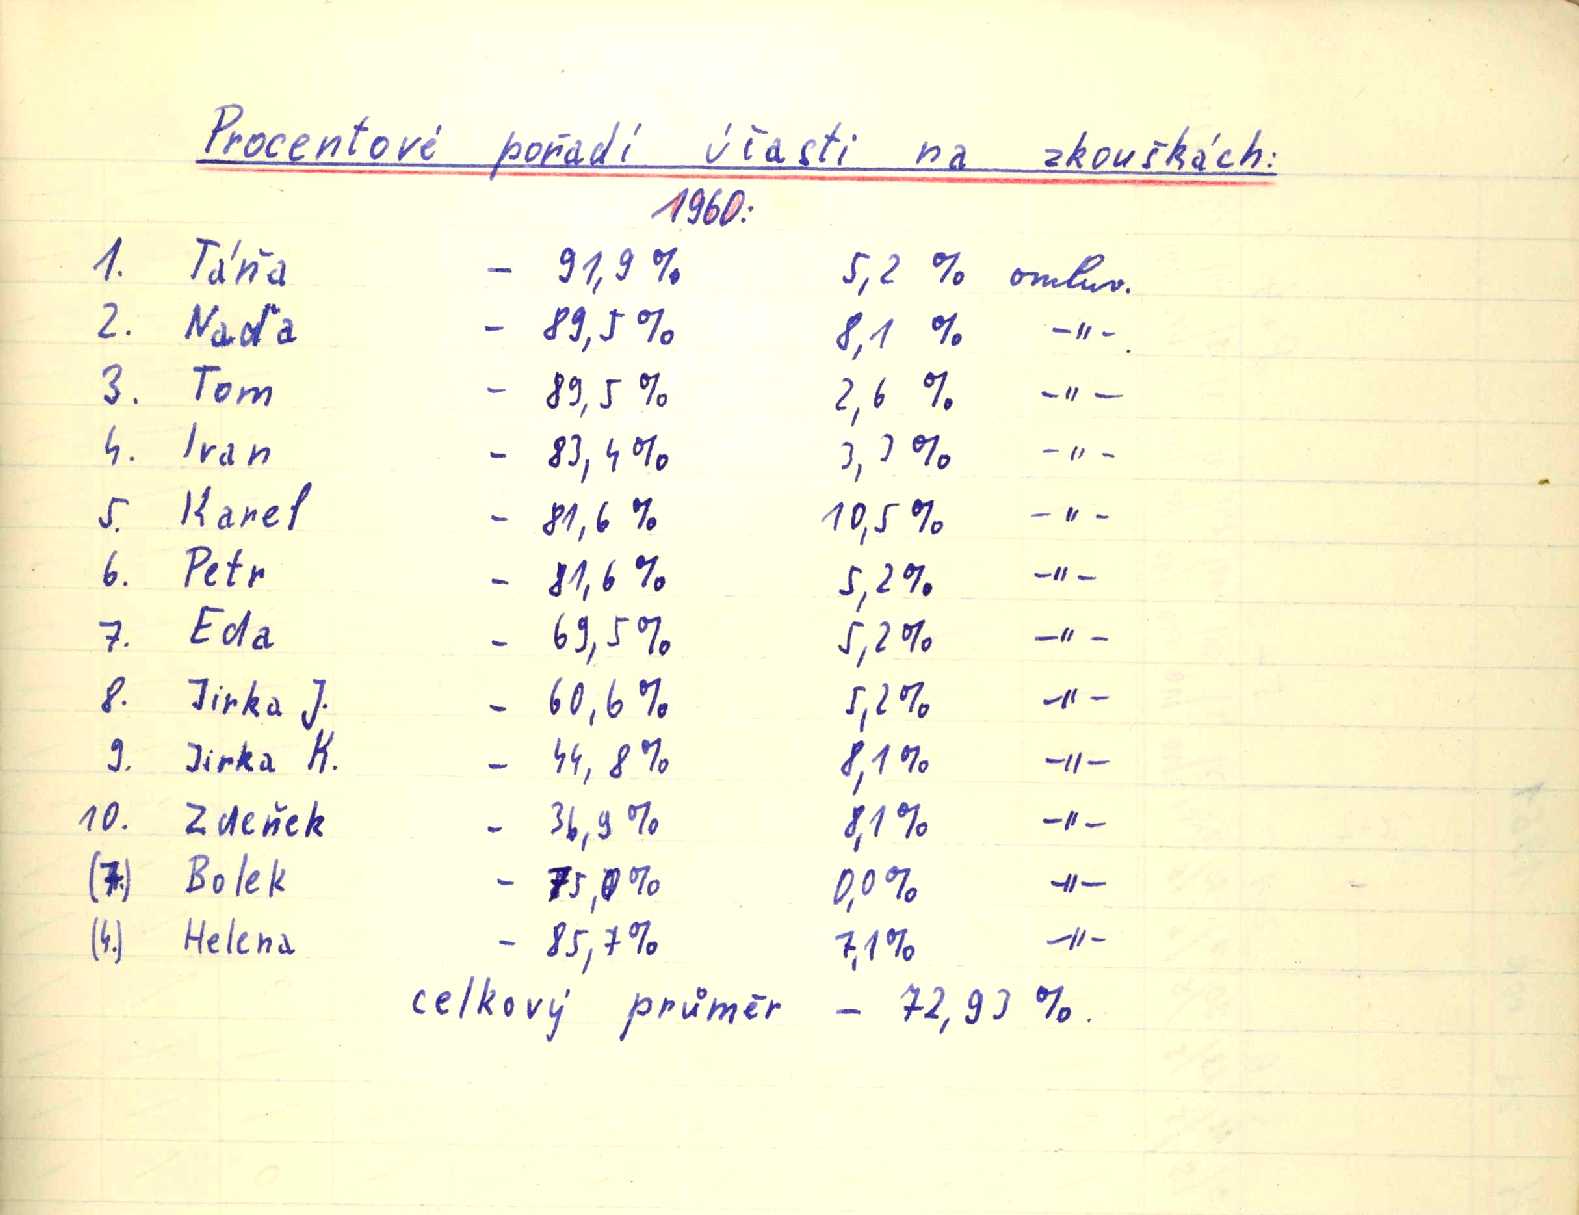 Procentové pořadí účasti na zkouškách:
1960:
1. Táňa - 91,9 % 5,2 % omluv.
2. Naďa - 89,5 % 8,1 % -"-.
3. Tom - 89,5 % 2,6 % -"-
4. Ivan - 83,4 % 3,3 % -"-
5. Karel - 81,6 % 10,5 % -"-
6. Petr - 81,6 % 5,2 % -"-
7. Eda - 69,5 % 5,2 % -"-
8. Jirka J. - 60,6 % 5,2 % -"-
9. Jirka K. - 44,8 % 8,1 % -"-
10. Zdeňek - 36,9 % 8,1 % -"-
(7.) Bolek - 75,0 % 0,0 % -"-
(4.) Helena - 85,7 % 7,1 % -"-
celkový průměr - 72,93 %.